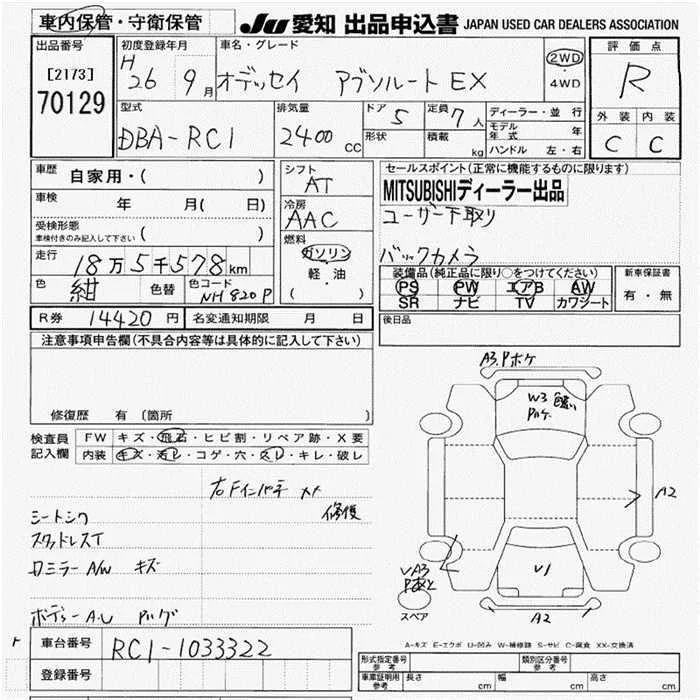 車内保管・守衛保管 JU 愛知 出品申込書 JAPAN USED CAR DEALERS ASSOCIATION
出品番号
[2173]
70129
初度登録年月
H 26 9月
車名・グレード
オデッセイ アブソルート EX
2WD
4WD
評価点
R
外装 内装
C C
型式
DBA-RC1
排気量
2400 CC
ドア 5
形状
定員 7人
積載 kg
ディーラー・並行
モデル年式 年
ハンドル 左・右
車歴 自家用・( )
車検 年 月( 日)
受検形態
車検付きのみ記入して下さい ( )
走行
18万5千578km
色 紺 色替 色コード NH820P
シフト
AT
冷房
AAC
燃料
ガソリン
軽・油
( )
セールスポイント(正常に機能するものに限ります)
MITSUBISHIディーラー出品
ユーザー下取り
バックカメラ
装備品(純正品に限り○をつけてください)
PS PW エアB AW
SR ナビ TV カワシート
新車保証書
有・無
R券 14420円 名変通知期限 月 日
後日品
注意事項申告欄(不具合内容等は具体的に記入して下さい)
修復歴 有 〔箇所
検査員
記入欄
FW キズ・飛石・ヒビ割・リペア跡・X要
内装 キズ・汚レ・コゲ・穴・スレ・キレ・破レ
右Fインパネ XX
修復
シートシワ
スタッドレスT
ロミラー A/W キズ
A3.Pボケ
W3
A2
V1
A3
A2
スペア
A-キズ E-エクボ U-凹み W-補修跡 S-サビ C-腐食 XX-交換済
車台番号 RC1-1033322
登録番号
形式指定番号
参考
類別区分番号
参考
車庫証明用
参考
長さ cm 幅 cm 高さ cm